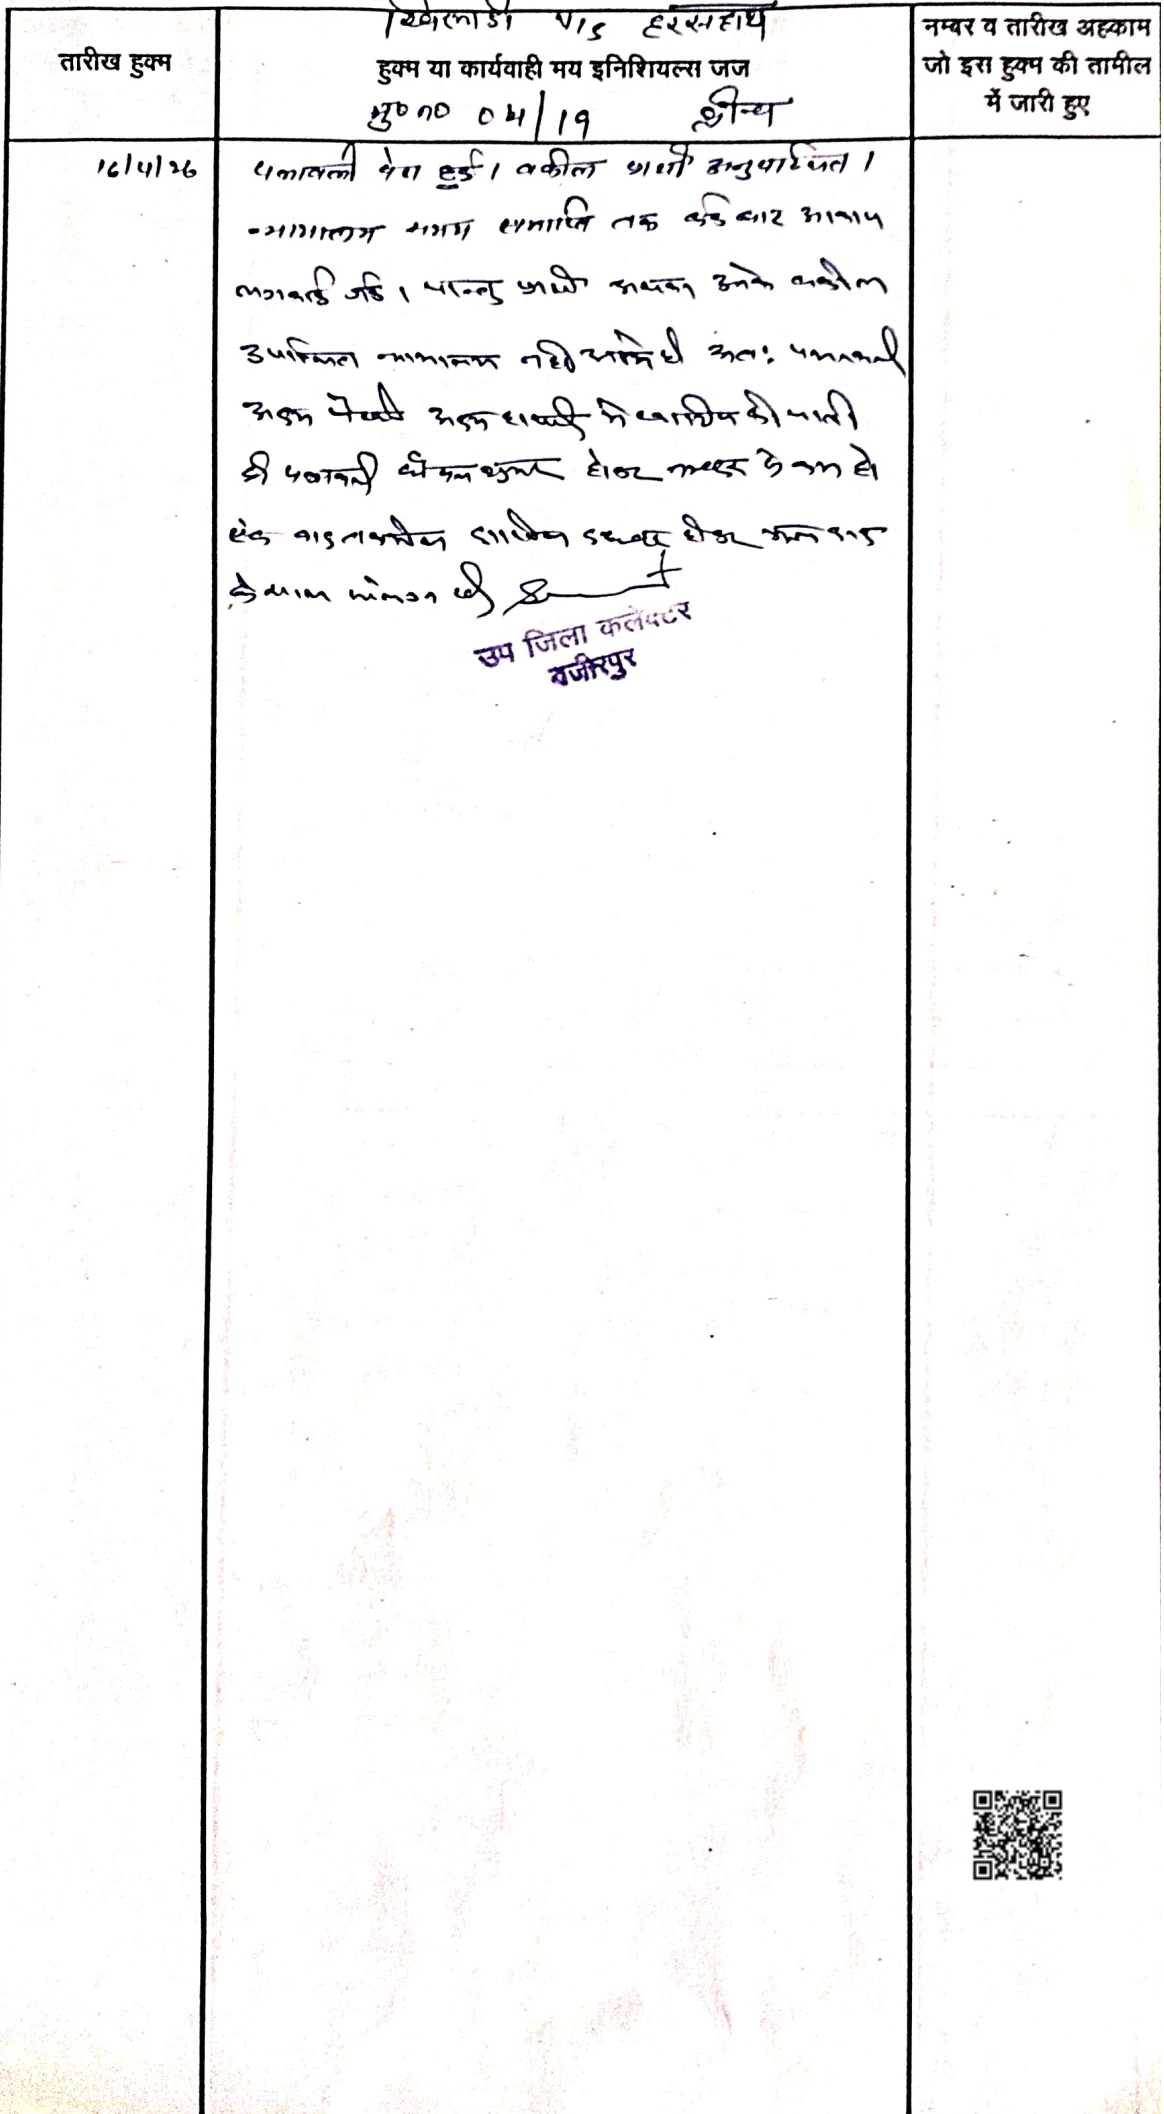 खिलाडी V/S हरसहाय
तारीख हुक्म
हुक्म या कार्यवाही मय इनिशियल्स जज
नम्बर व तारीख अहकाम
जो इस हुक्म की तामील
में जारी हुए
मु0 न0 04/19
16/4/26
पत्रावली पेश हुई। वकील प्रार्थी अनुपस्थित।
न्यायालय समय समाप्ति तक कई बार आवाज
लगवाई गई। परन्तु प्रार्थी अथवा उनके वकील
उपस्थित न्यायालय नहीं आये है अतः पत्रावली
अदम पैरवी अदम हाजरी मे खारिज की जाती
है पत्रावली फैसल शुमार होकर नम्बर से कम हो
दाखिल दफ्तर होकर मूल वाद
के साथ संलग्न रहे
उप जिला कलेक्टर
वजीरपुर